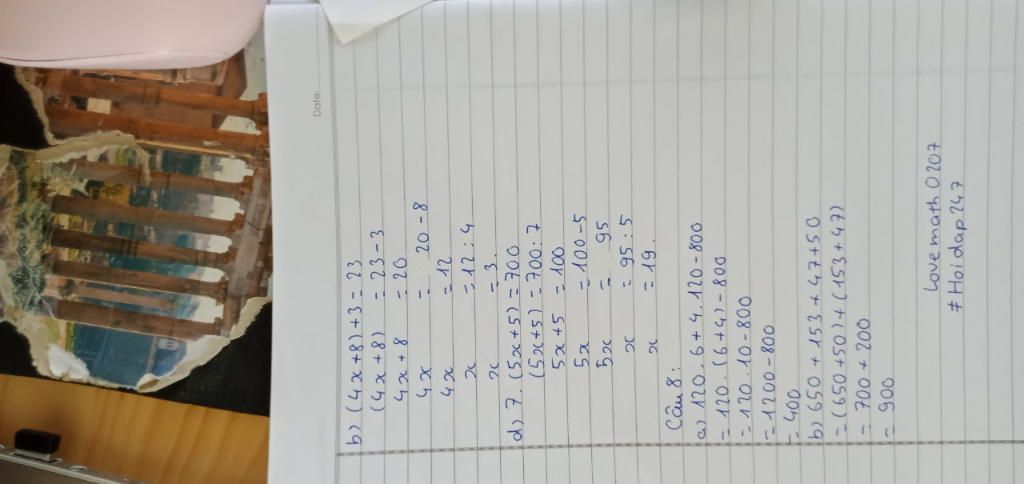 Date:
b) (4x+8)+3 = 23
(4x+8) = 23-3
4x+8 = 20
4x = 20-8
4x = 12
x = 12:4
x = 3.
d) 7.(5x+5)=700
(5x+5) = 700:7
5x+5 = 100
5x = 100-5
5x = 95
x = 95:5
x = 19.
Câu 8:
a) 120.6+4.120-800
= 120.(6+4)-800
= 120.10-800
= 1200-800
= 400
b) 650+153+47+50
= (650+50)+(153+47)
= 700+200
= 900
Love math 0207
#Hoidap247